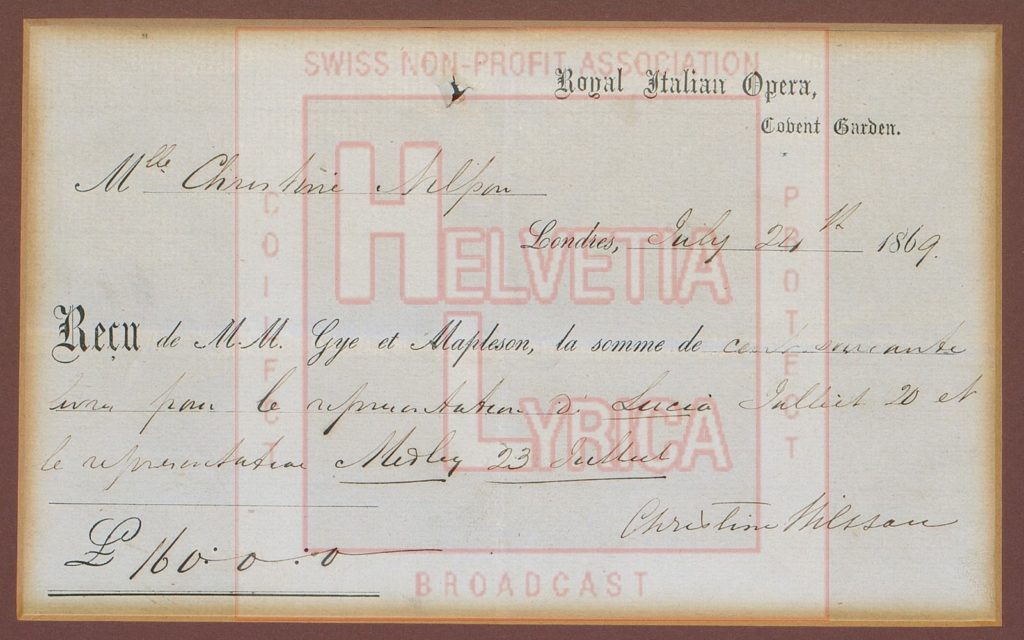 SWISS NON-PROFIT ASSOCIATION
Royal Italian Opera,
Covent Garden.
Mlle Christine Nilsson
Londres, July 24th 1869.
Reçu de M.M. Gye et Mapleson, la somme de cent soixante
livres pour le representation d' Lucia Julliet 20 et
le representation Medley 23 Julliet
Christine Nilsson
£ 160:0:0
COLLECT
PROTECT
HELVETIA
LYRICA
BROADCAST